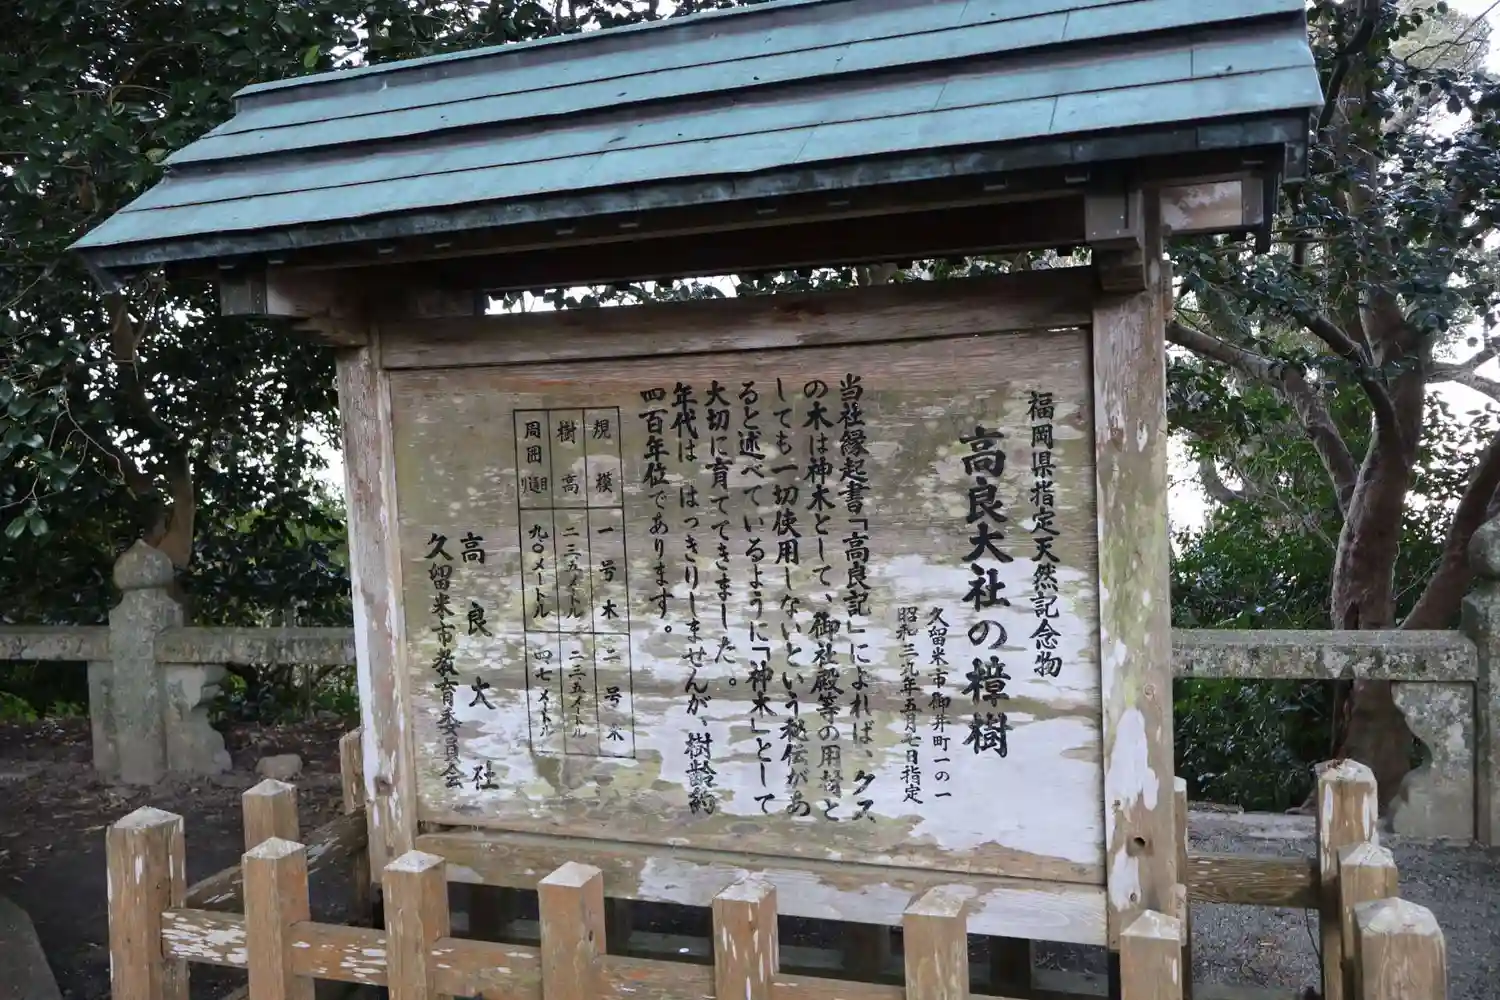 福岡県指定天然記念物
高良大社の樟樹
久留米市御井町一の一
昭和三九年五月七日指定
当社縁起書「高良記」によれば、クス
の木は神木として、御社殿等の用材と
しても一切使用しないという秘伝があ
ると述べているように「神木」として
大切に育ててきました。
年代は はっきりしませんが、樹齢約
四百年位であります。
規模 一号木 二号木
樹高 二三五メートル 二三五メートル
周囲 九〇メートル 四・七メートル
高良大社
久留米市教育委員会